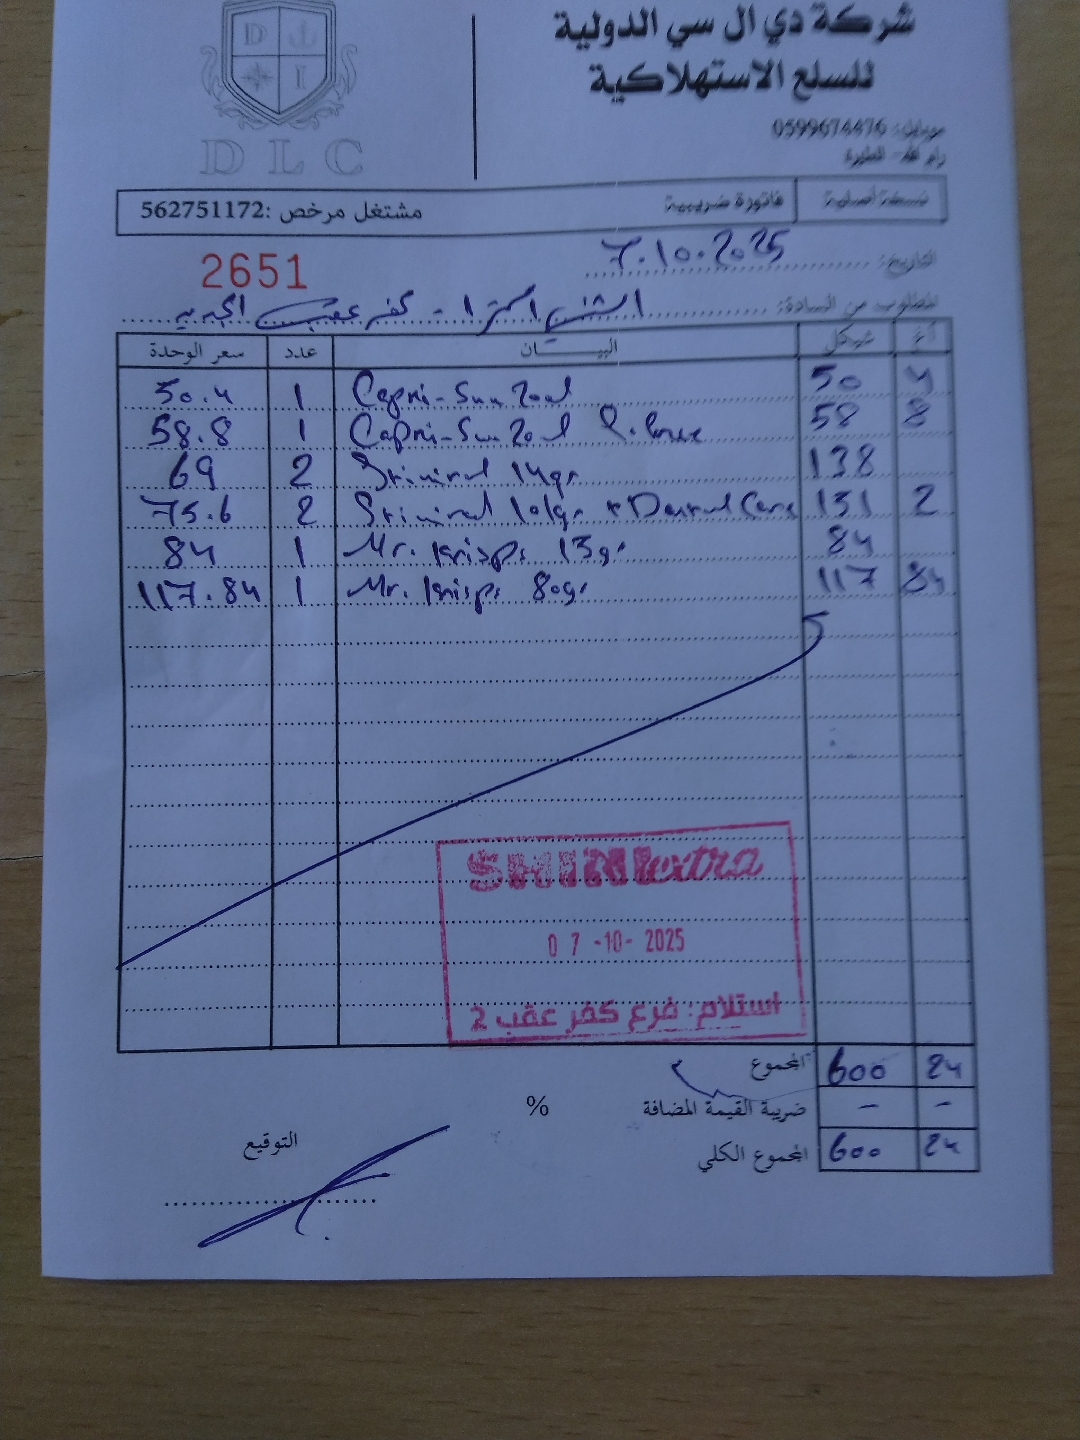 D I
DLC
شركة دي ال سي الدولية
للسلع الاستهلاكية
موبايل: 0599674476
رام الله - الطيرة
نسخة أصلية فاتورة ضريبية مشتغل مرخص :562751172
2651
التاريخ: 7.10.2025
المطلوب من السادة: الشني اكسترا - كفر عقب الجديد
أغ شيكل البيــــان عدد سعر الوحدة
50.4 1 Capri-Sun 20cl 50 4
58.8 1 Capri-Sun 20cl 58 8
69 2 Striniral 14gr 138
75.6 2 Striniral 101gr 151 2
84 1 Mr. Krisps 15gr 84
117.84 1 Mr. Krisps 80gr 117 84
SHINI extra
07-10-2025
استلام: فرع كفر عقب 2
المجموع 600 24
ضريبة القيمة المضافة % - -
المجموع الكلي 600 24
التوقيع